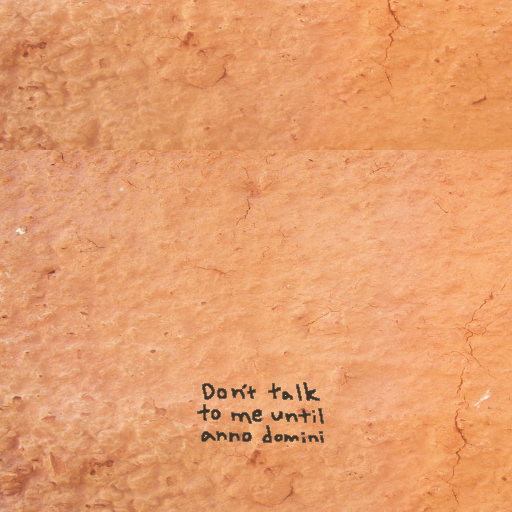 Don't talk
to me until
anno domini